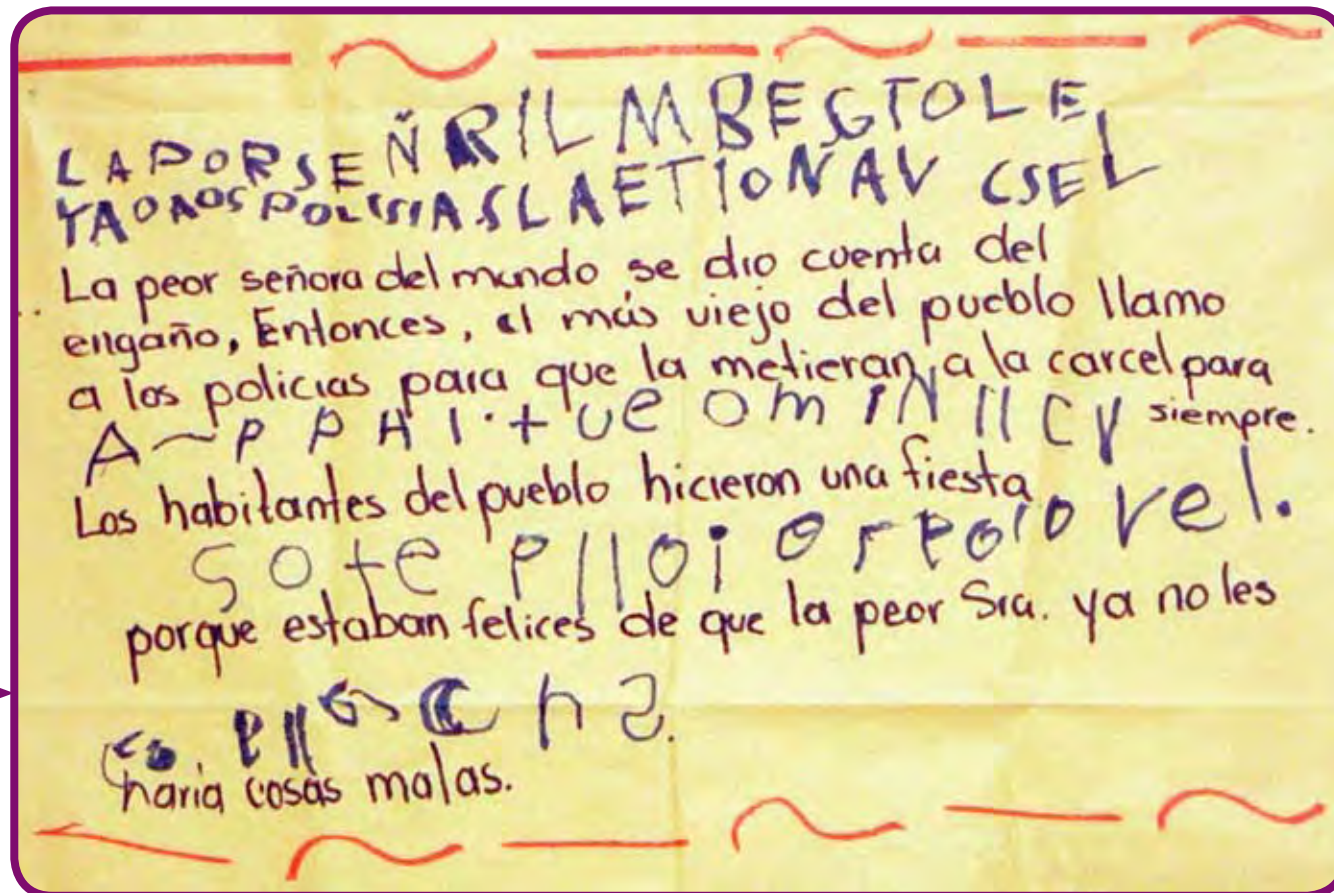 LAPORSEÑRILMBEGTOLE
YAOAOSPOLISIASLAETIONAV CSEL
La peor señora del mundo se dio cuenta del
engaño, Entonces, el más viejo del pueblo llamo
a los policias para que la metieran a la carcel para
siempre.
Los habitantes del pueblo hicieron una fiesta
sote
porque estaban felices de que la peor Sra. ya no les
haria cosas malas.